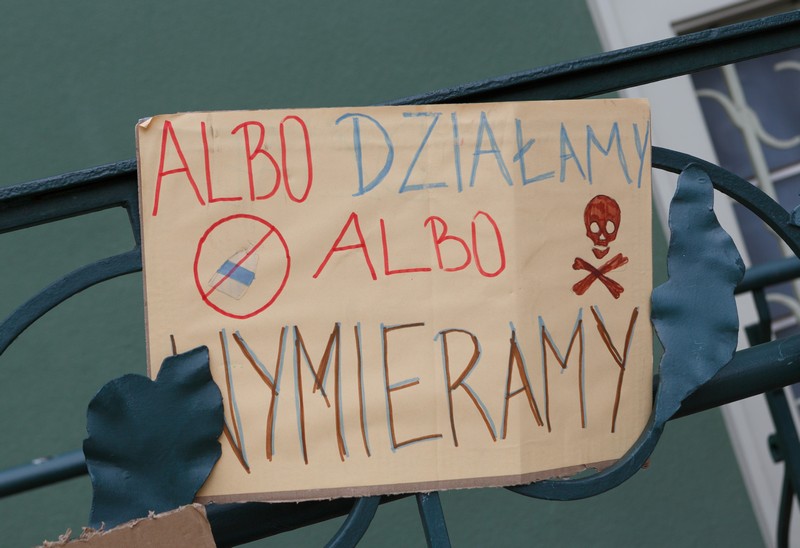 ALBO DZIAŁAMY
ALBO
WYMIERAMY